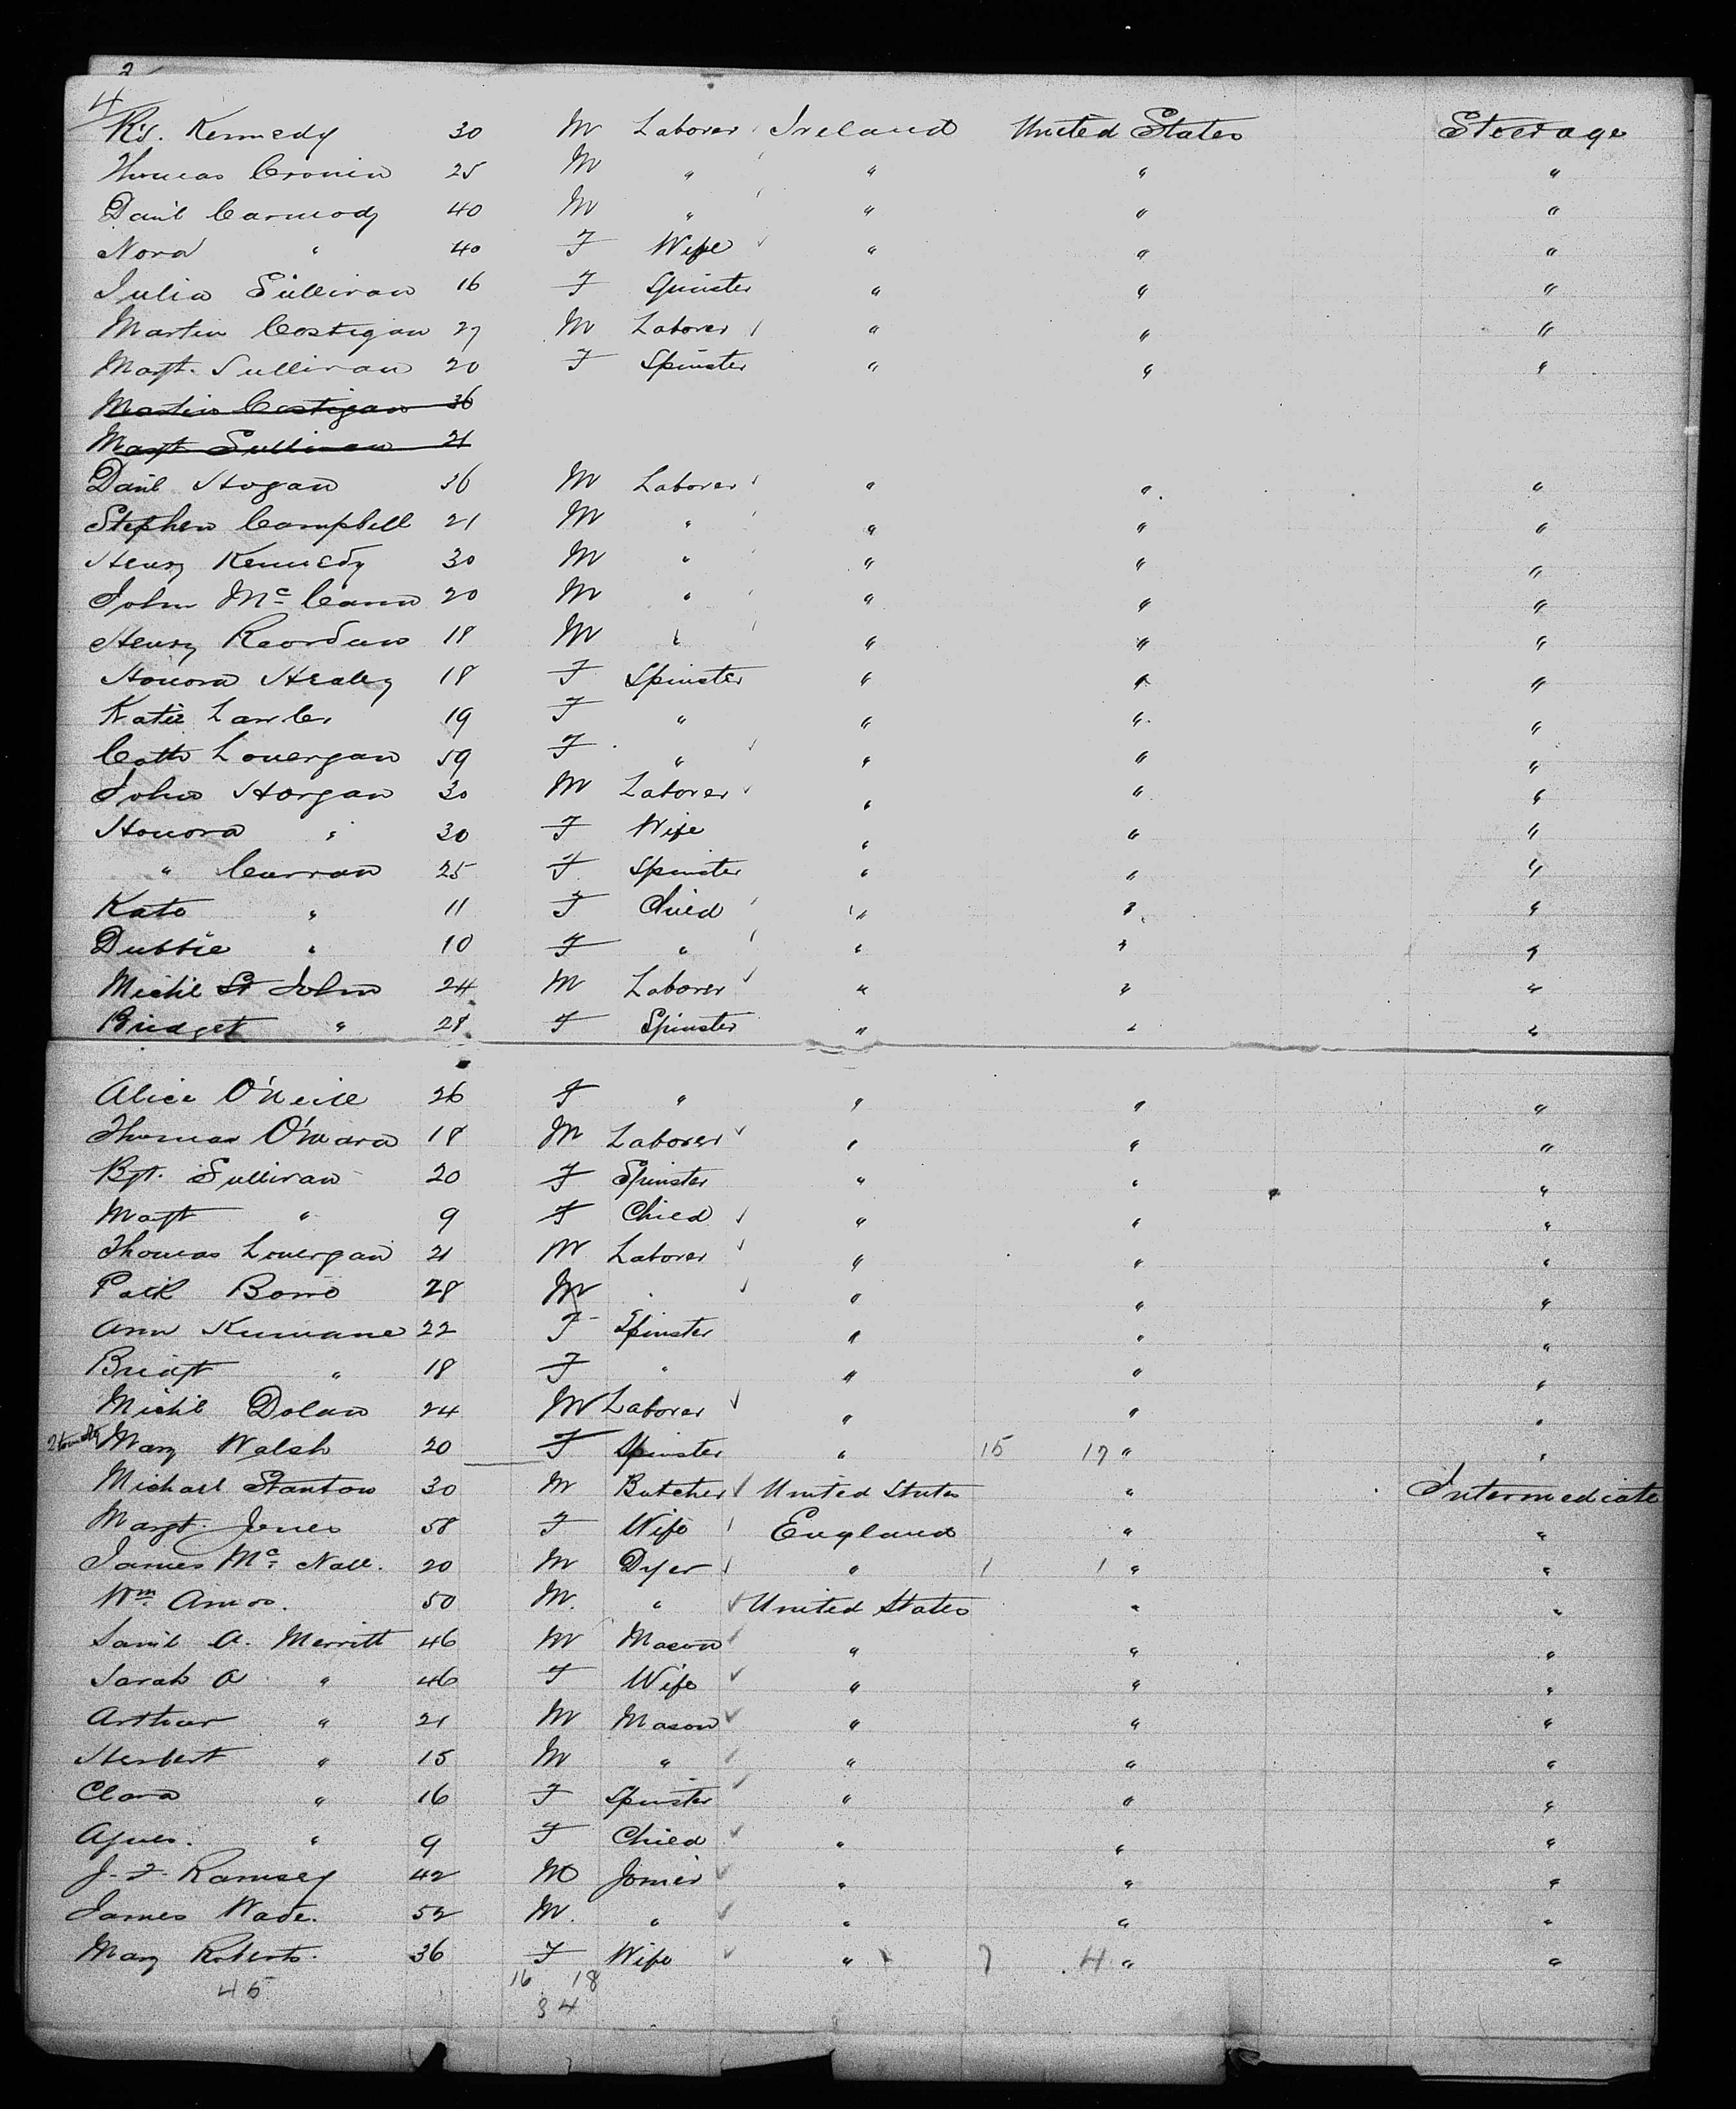 2
4
Rd. Kennedy 30 M Laborer Ireland United States Steerage
Thomas Cronin 25 M " " " "
Danl Carmody 40 M " " " "
Nora " 40 F Wife " " "
Julia Sullivan 16 F Spinster " " "
Martin Costigan 27 M Laborer " " "
Margt. Sullivan 20 F Spinster " " "
Martin Costigan 36
Margt Sullivan 21
Danl Hogan 36 M Laborer " " "
Stephen Campbell 21 M " " " "
Henry Kennedy 30 M " " " "
John Mc Cann 20 M " " " "
Henry Reordan 18 M " " " "
Honora Healey 18 F Spinster " " "
Katie Lawler 19 F " " " "
Cath Lonergan 59 F " " " "
John Horgan 30 M Laborer " " "
Honora " 30 F Wife " " "
" Curran 25 F Spinster " " "
Kate " 11 F Child " " "
Dubbie " 10 F " " " "
Michl St John 24 M Laborer " " "
Bridget " 28 F Spinster " " "
Alice O'Neill 26 F " " " "
Thomas O'Mara 18 M Laborer " " "
Bgt. Sullivan 20 F Spinster " " "
Margt " 9 F Child " " "
Thomas Lonergan 21 M Laborer " " "
Patk 28 M " " " "
Ann 22 F Spinster " " "
Bridgt " 18 F " " " "
Michl Dolan 24 M Laborer " " "
Mary Walsh 20 F Spinster " 15 17 " "
Michael Stanton 30 M Butcher United States " Intermediate
Margt. Jones 58 F Wife England " "
James Mc Nall. 20 M Dyer " 1 1 " "
Wm. Amos. 50 M. " United States " "
Saml A. Merritt 46 M Mason " " "
Sarah A " 46 F Wife " " "
Arthur " 21 M Mason " " "
Herbert " 15 M " " " "
Clara " 16 F Spinster " " "
Agnes. " 9 F Child " " "
J. F. Ramsey 42 M Joiner " " "
James Wade. 52 M. " " " "
Mary Roberts. 36 F Wife " 7 4 " "
45 16 18
34